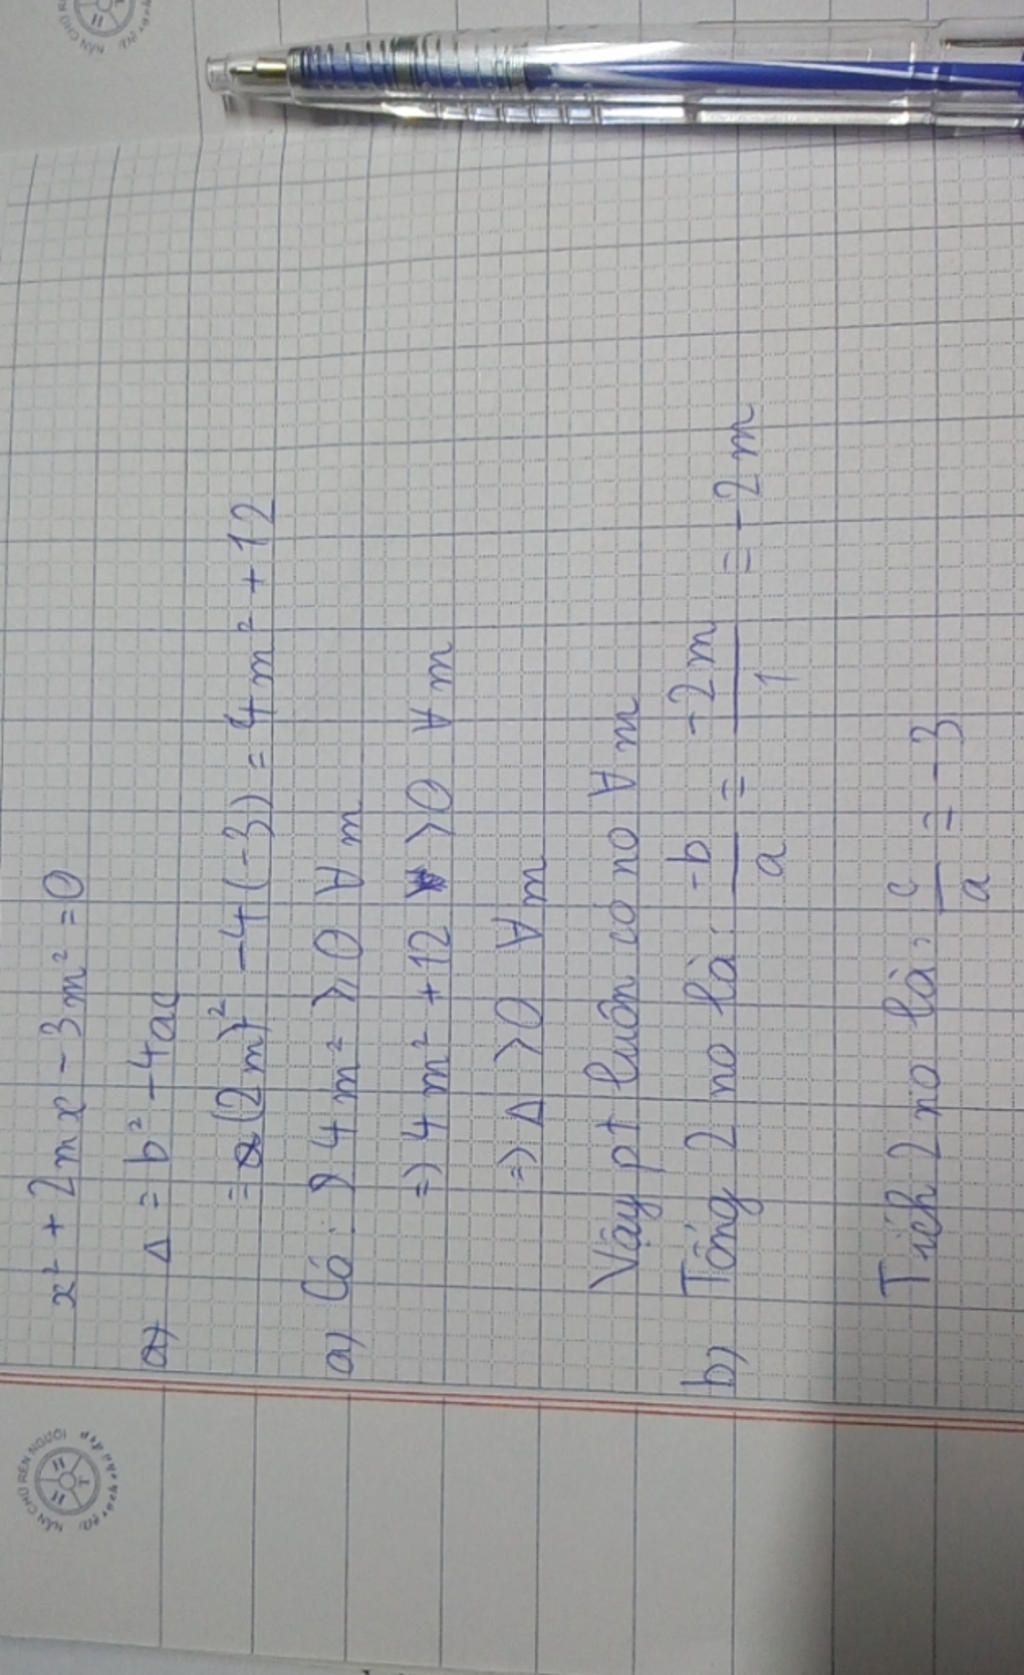 x² + 2mx - 3m² = 0
a) Δ = b² - 4ac
= (2m)² - 4(-3) = 4m² + 12
a) Có: 4m² ≥ 0 ∀ m
=) 4m² + 12 > 0 ∀ m
=) Δ > 0 ∀ m
Vậy pt luôn có no ∀ m
b) Tổng 2 no là: -b/a = -2m/1 = -2m
Tích 2 no là: c/a = -3
NẮN CHỮ RÈN NGƯỜI